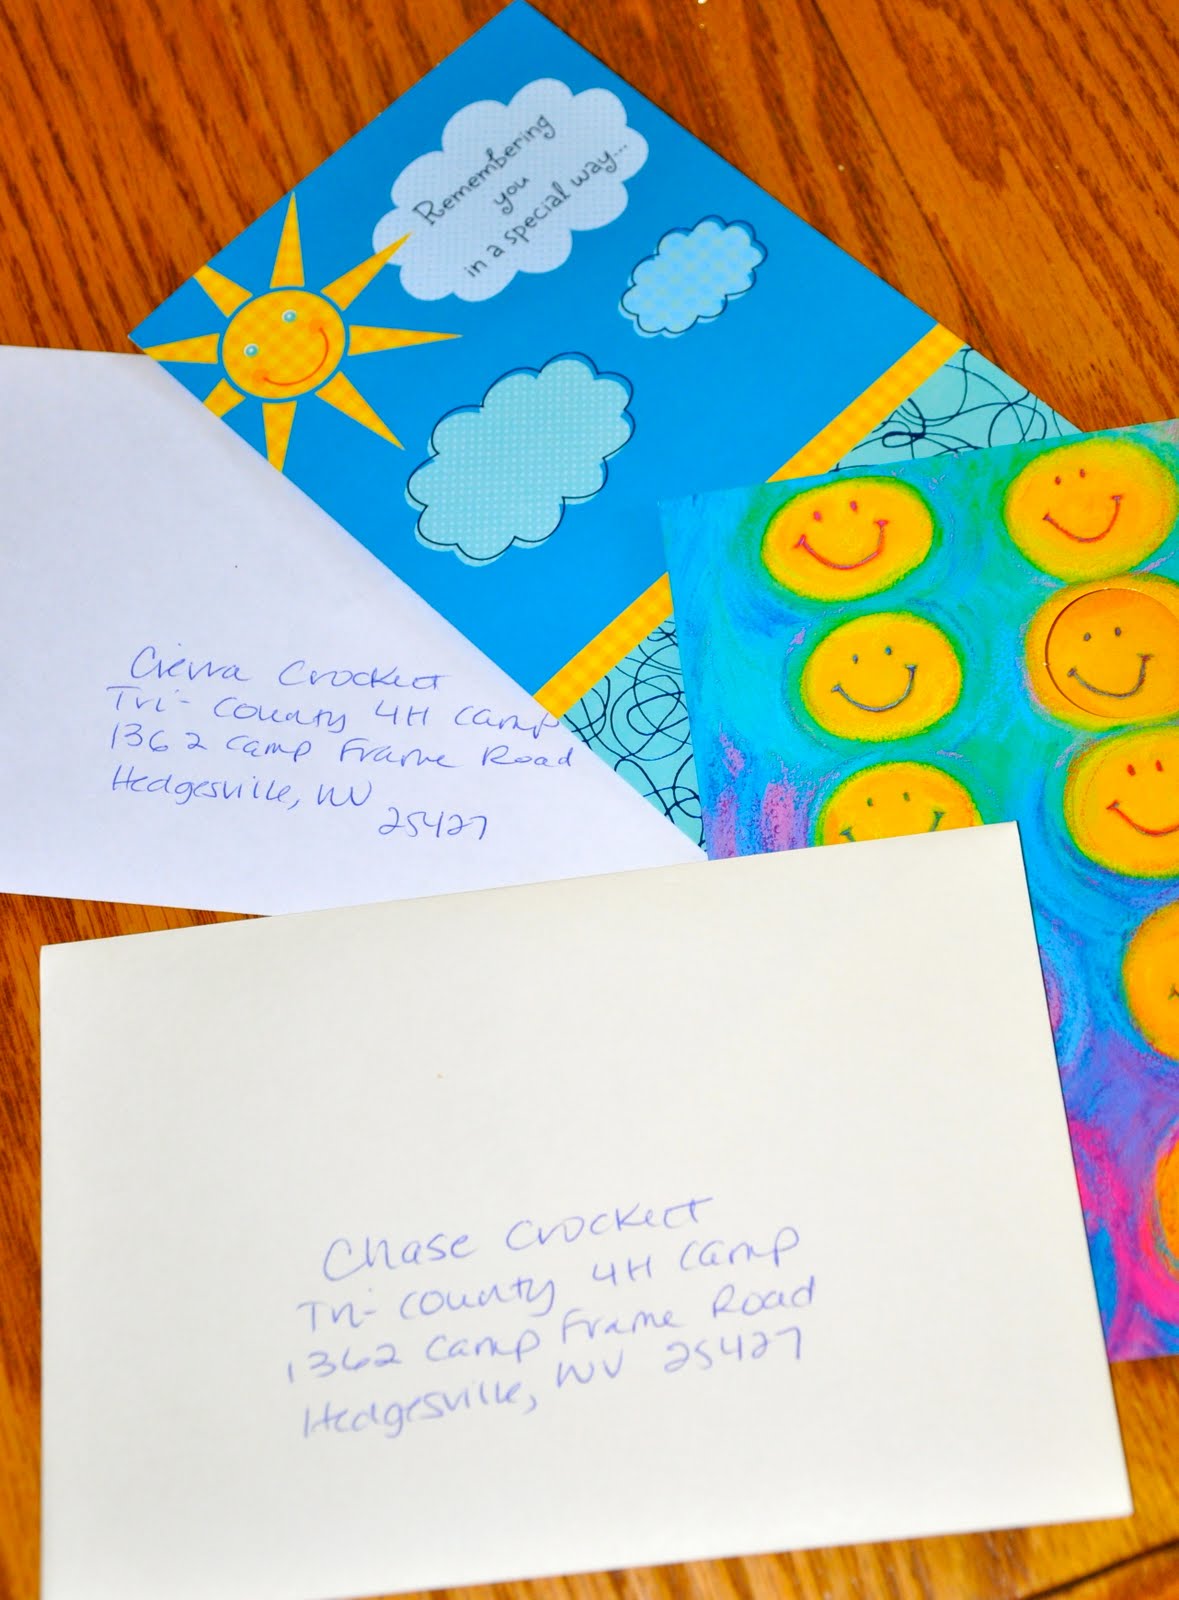 Remembering
you
in a special way...
Cierra Crockett
Tri-County 4H Camp
1362 Camp Frame Road
Hedgesville, WV
25427
Chase Crockett
Tri-County 4H Camp
1362 Camp Frame Road
Hedgesville, WV 25427